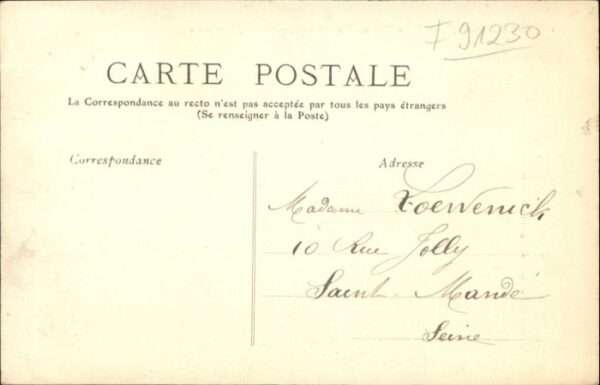 F 91230
CARTE POSTALE
La Correspondance au recto n'est pas acceptée par tous les pays étrangers
(Se renseigner à la Poste)
Correspondance
Adresse
Madame
10 Rue Jolly
Saint-Mandé
Seine